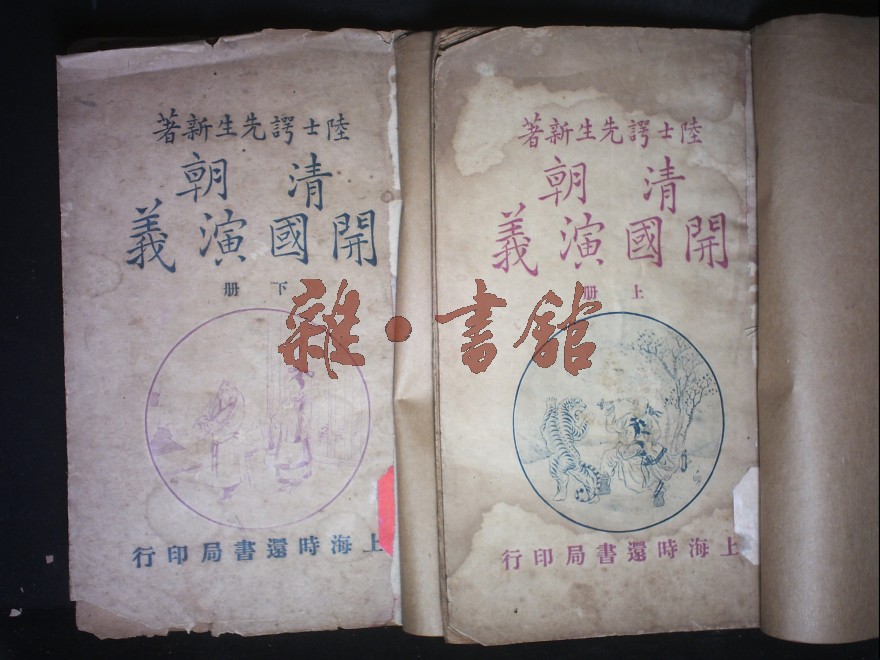 陸士諤先生新著
清朝
開國演義
上册
上海時還書局印行
陸士諤先生新著
清朝
開國演義
下册
上海時還書局印行
雜·書舘